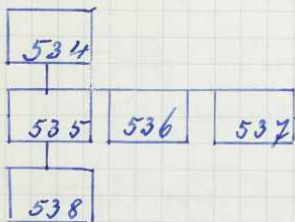 534
535 536 537
538